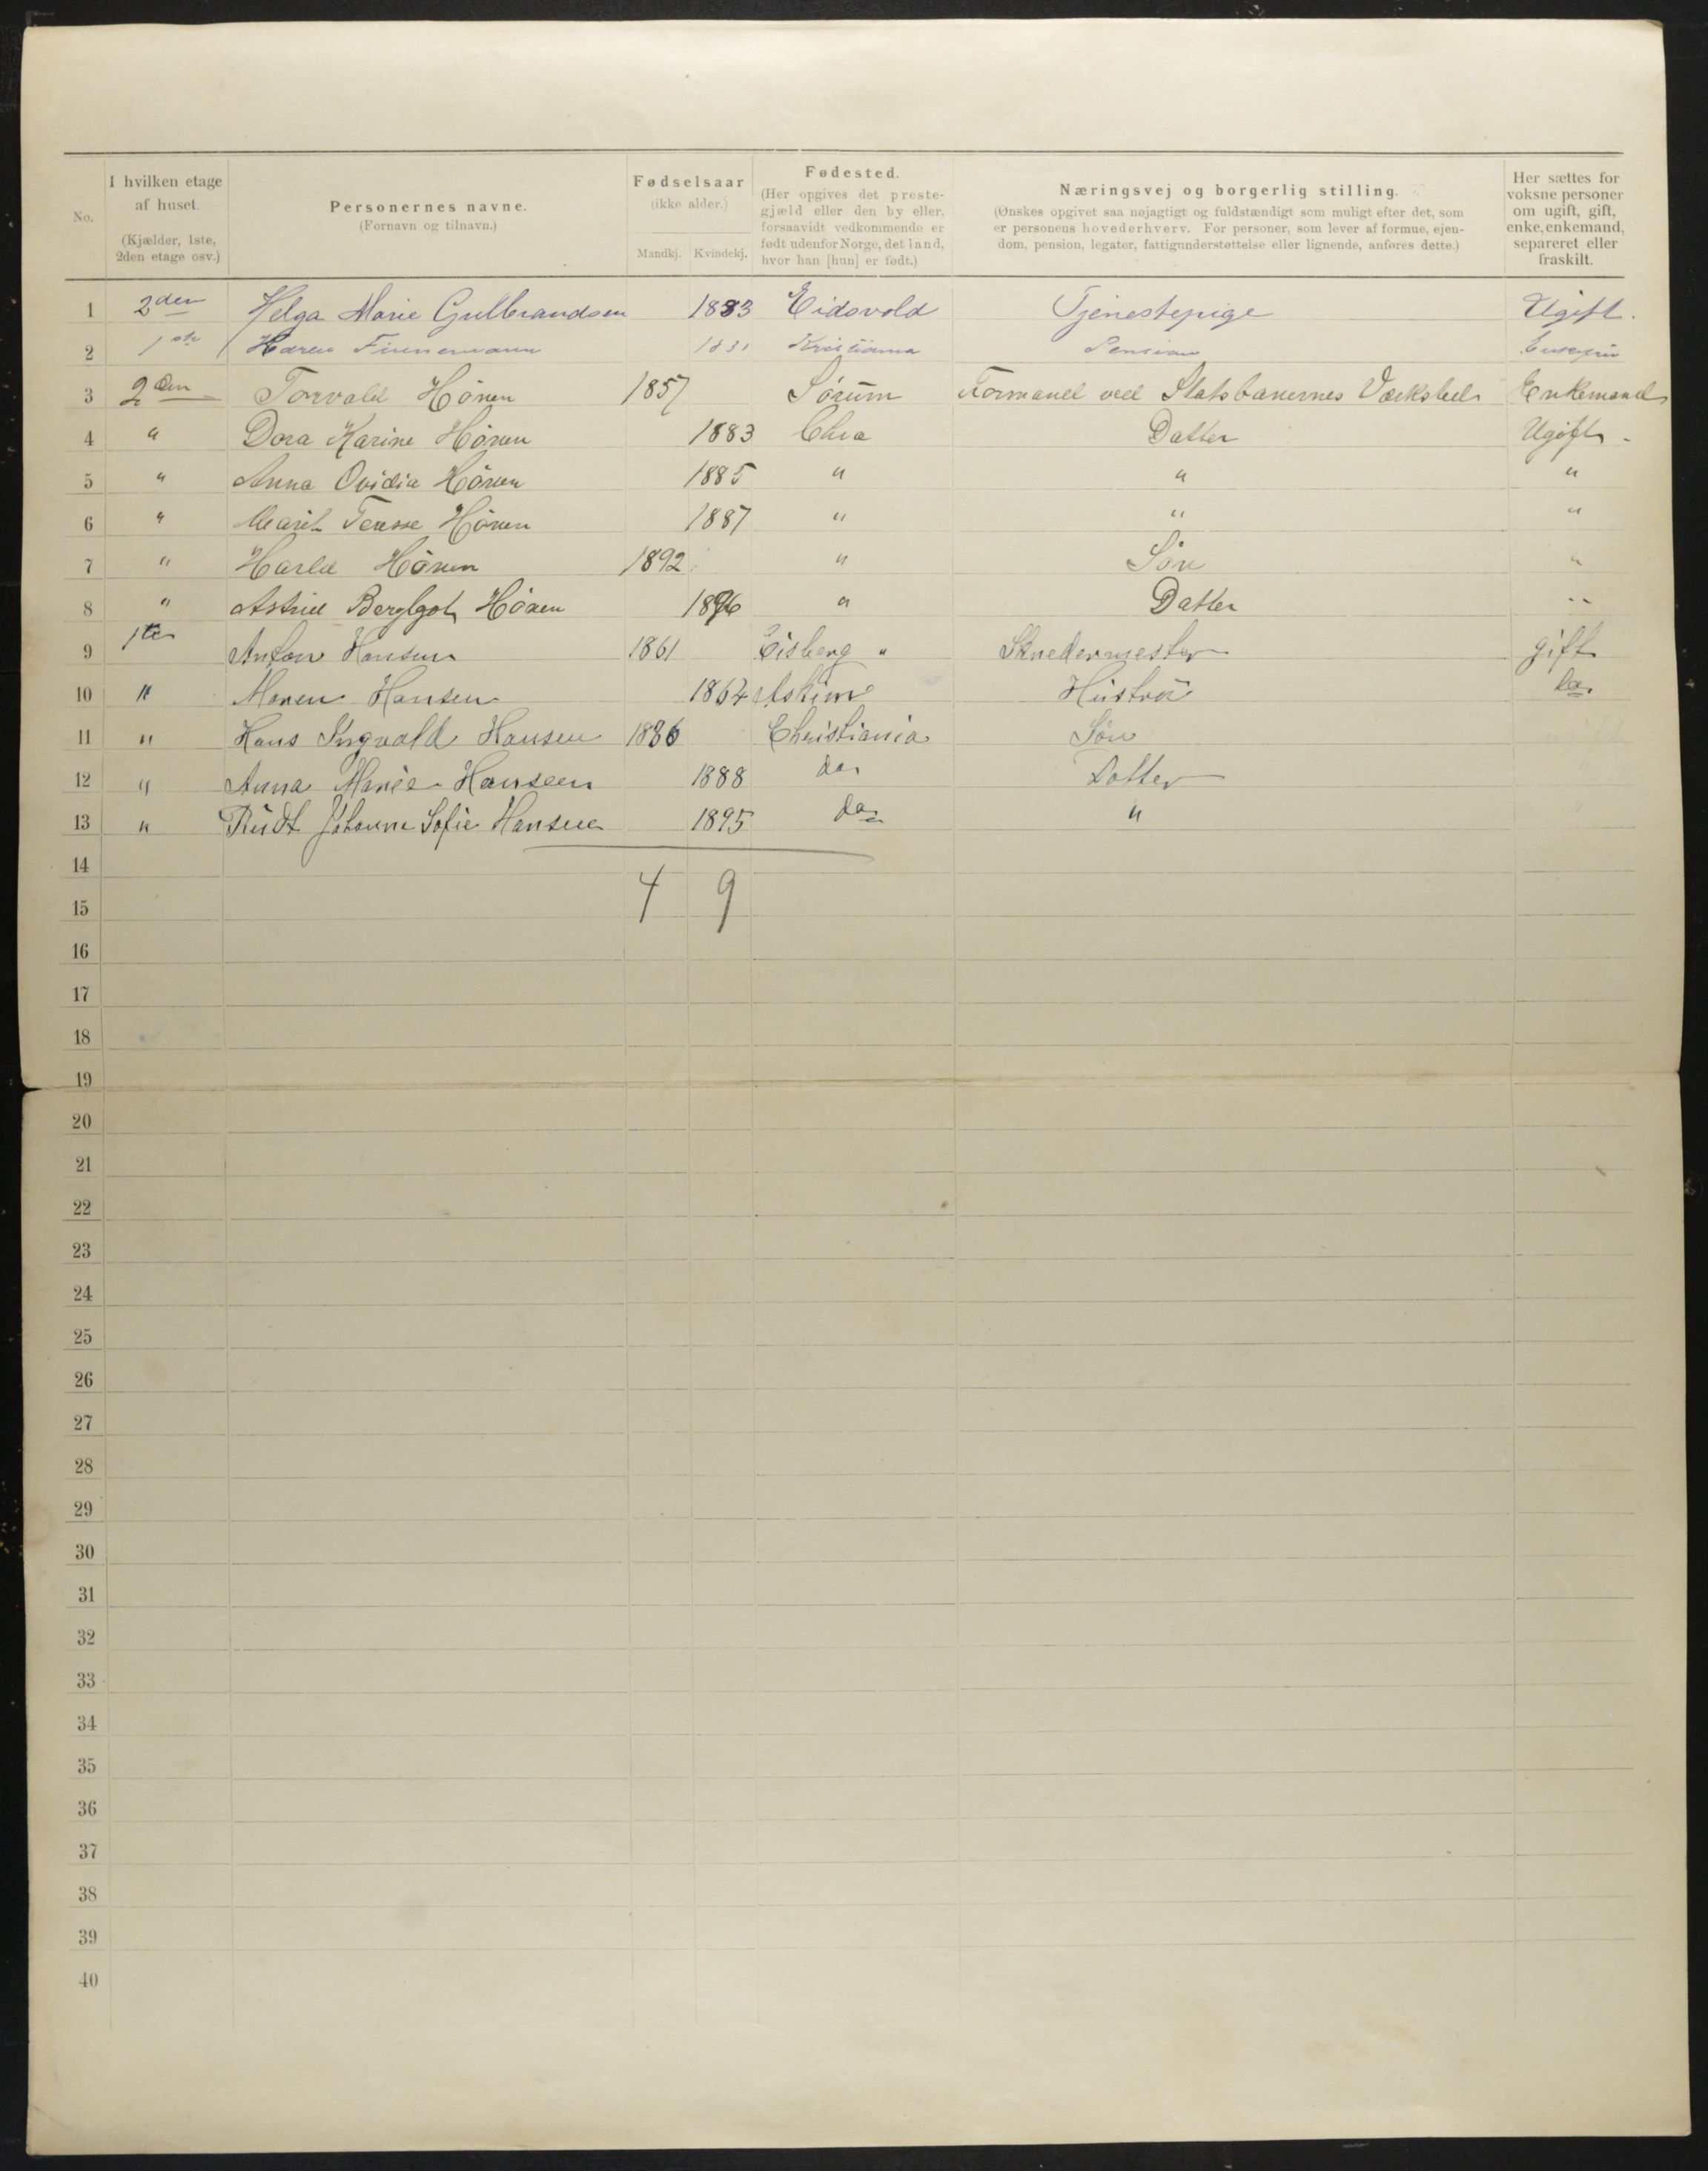 No.
I hvilken etage af huset. (Kjælder, 1ste, 2den etage osv.)
Personernes navne. (Fornavn og tilnavn.)
Fødselsaar (ikke alder.) Mandkj. Kvindekj.
Fødested. (Her opgives det prestegjæld eller den by eller, forsaavidt vedkommende er født udenfor Norge, det land, hvor han [hun] er født.)
Næringsvej og borgerlig stilling. (Ønskes opgivet saa nøjagtigt og fuldstændigt som muligt efter det, som er personens hovederhverv. For personer, som lever af formue, ejendom, pension, legater, fattigunderstøttelse eller lignende, anføres dette.)
Her sættes for voksne personer om ugift, gift, enke, enkemand, separeret eller fraskilt.
1 2den Helga Marie Gulbrandsen 1883 Eidsvold Tjenestepige Ugift.
2 1ste Karen Finnemann 1831 Kristiania Pension
3 2den Torvald Hönen 1857 Sørum Formand ved Statsbanernes Værksted Enkemand
4 " Dora Karine Hönen 1883 Chra Datter Ugift -
5 " Anna Ovidia Hönen 1885 " " "
6 " Marit Hönen 1887 " " "
7 " Harld Hönen 1892 " Sön "
8 " Astrid Hönen 1896 " Datter "
9 1ste Anton Hansen 1861 Eisberg " Skredermester gift
10 " Maren Hansen 1864 Askim Hustru do.
11 " Hans Ingvald Hansen 1886 Christiania Søn
12 " Anna Marie Hansen 1888 do. Datter
13 " Rudt Johanne Sofie Hansen 1895 do. "
14
4 9
15
16
17
18
19
20
21
22
23
24
25
26
27
28
29
30
31
32
33
34
35
36
37
38
39
40